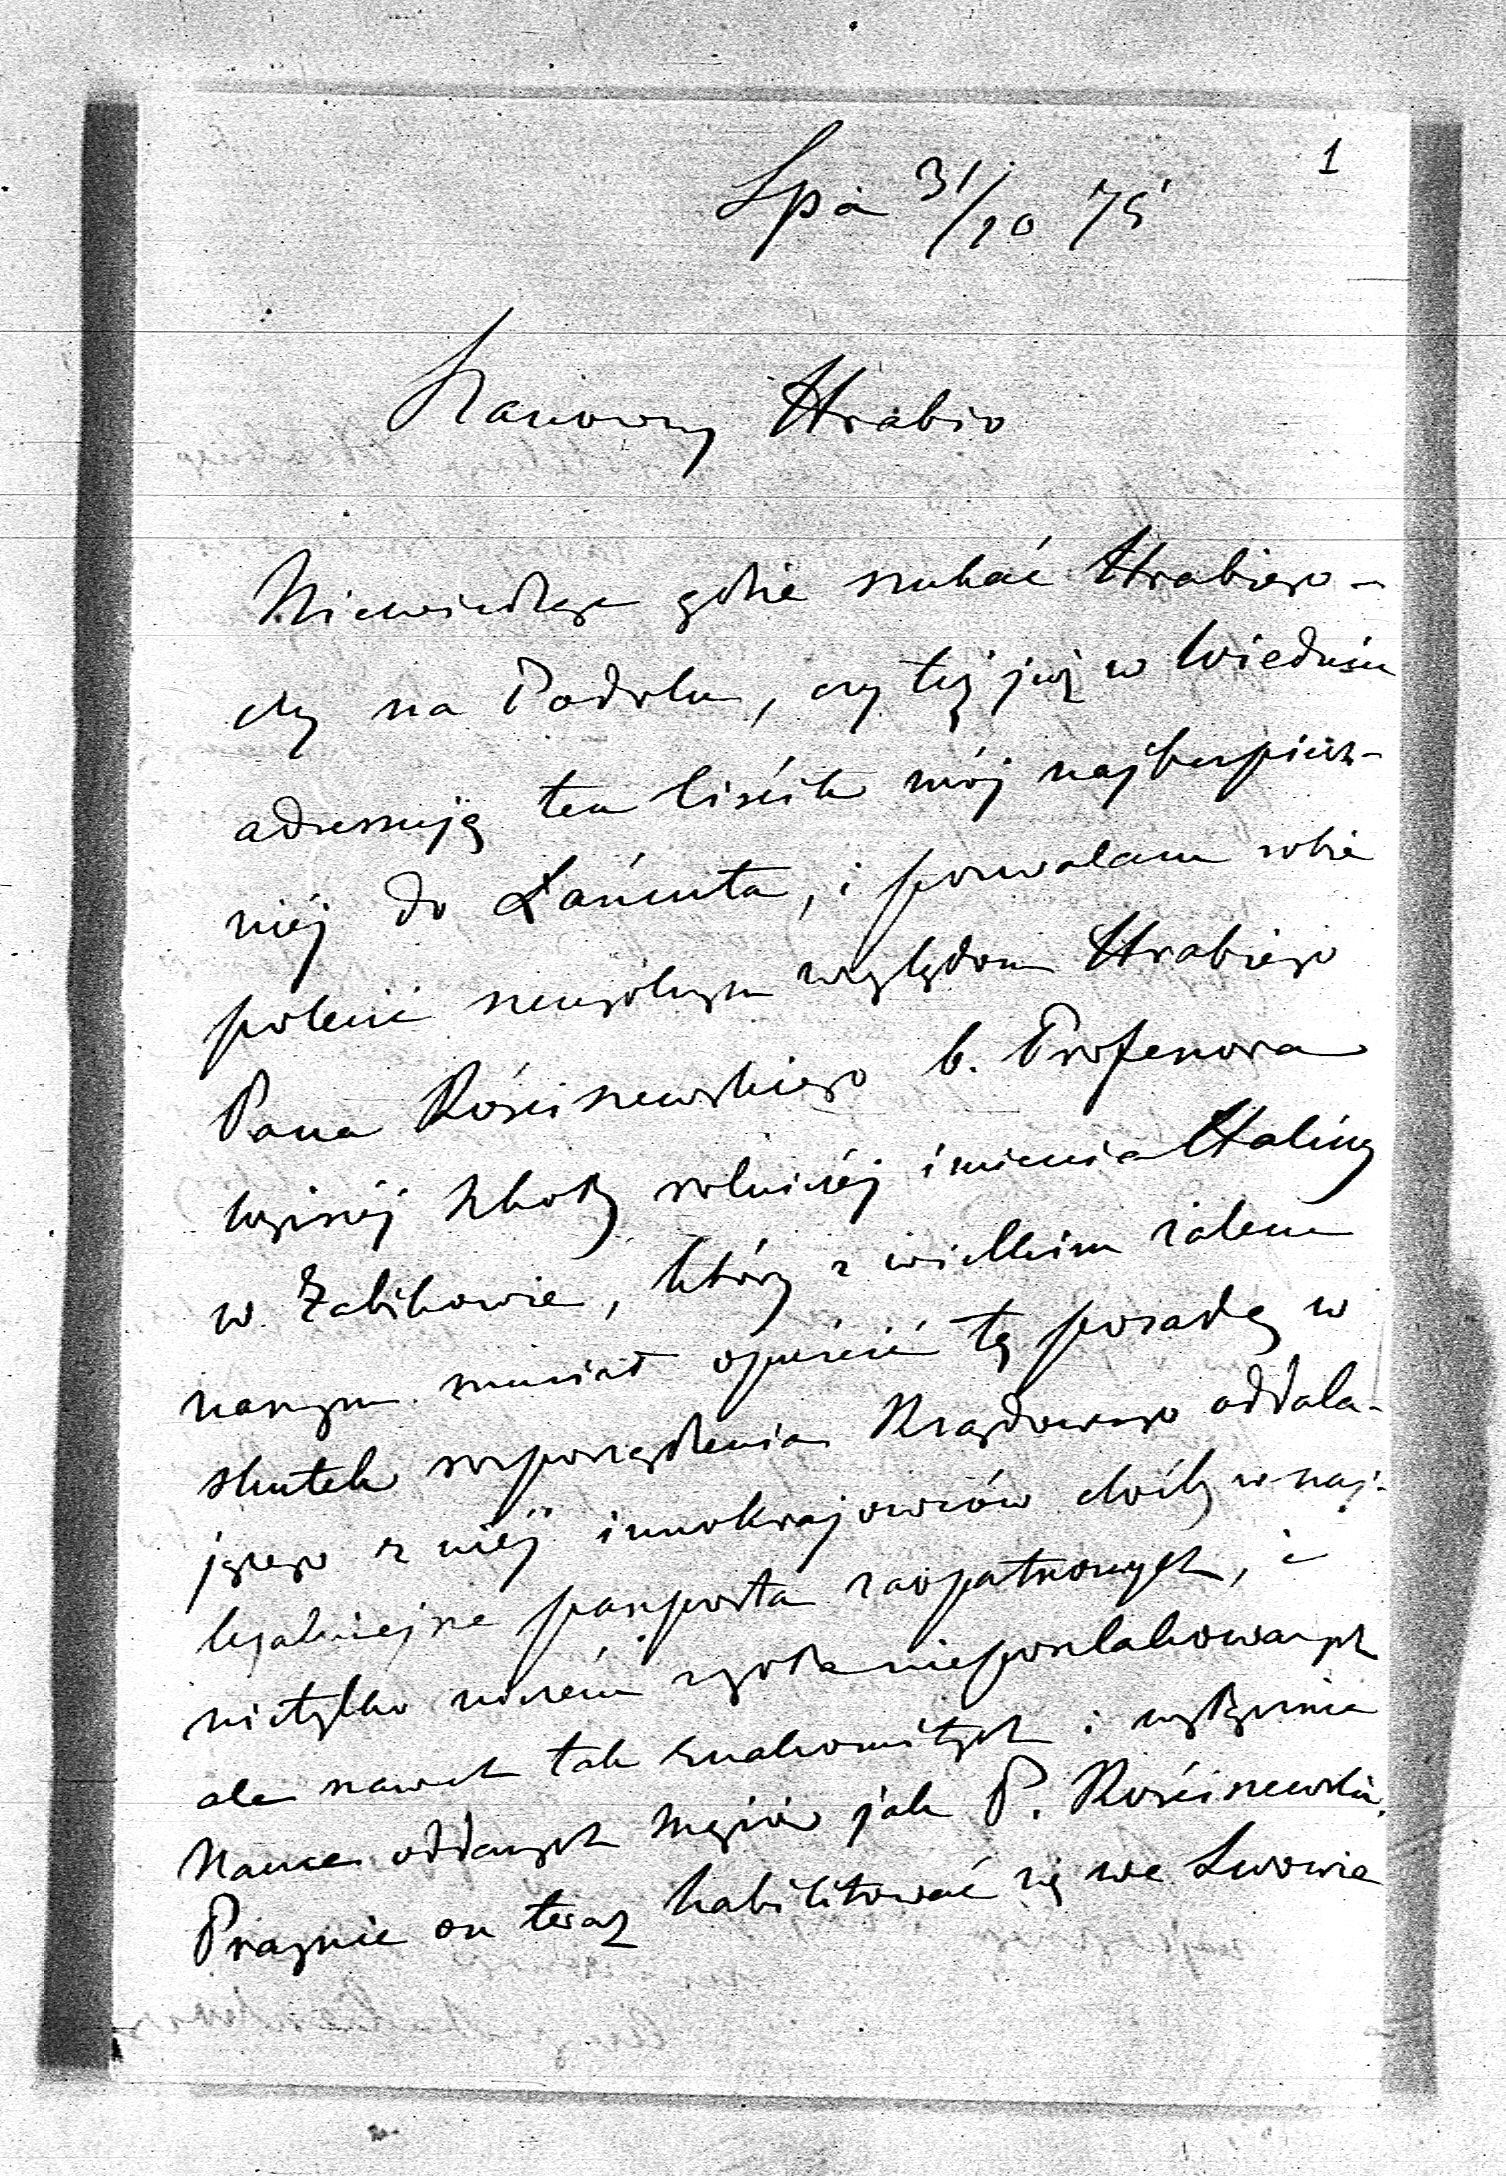 1
Spa 31/10 75
Szanowny Hrabio
Niewiedząc gdzie szukać Hrabiego –
czy na Podolu, czy też już w Wiedniu
adressuję ten liścik mój najbezpiecz-
niéj do Łańcuta, i pozwalam sobie
polecić szczególnym względom Hrabiego
Pana Rościszewskiego b. Professora
wyższéj szkoły rolniczéj imienia Haliny
w Żabikowie, który z wielkim żalem
naszym musiał opuścić tę posadę w
skutek rozporządzenia Rządowego oddala-
jącego z niéj innokrajowców choćby w naj-
legalniejsze paszporta zaopatrzonych, i
nietylko niczém zgoła nieposzlakowanych
ale nawet tak znakomitych i wyłącznie
Nauce oddanych mężów jak P. Rościszewski.
Pragnie on teraz habilitować się we Lwowie